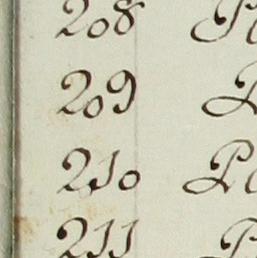 208
209
210
211